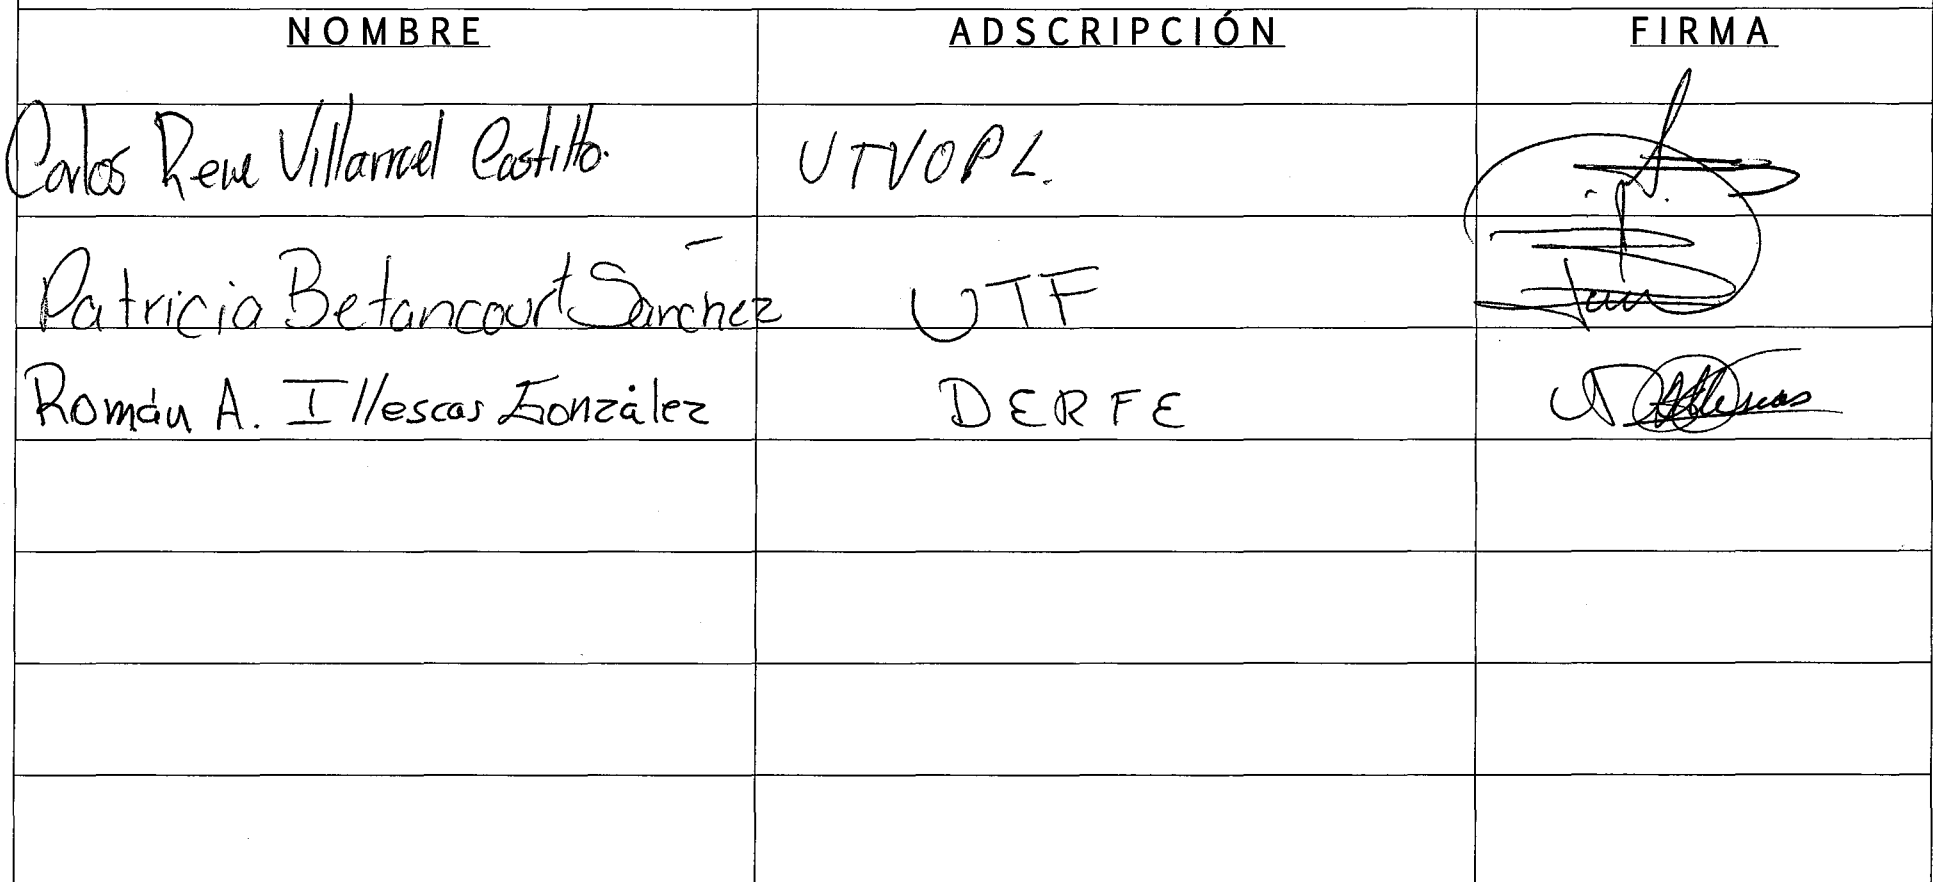 NOMBRE ADSCRIPCIÓN FIRMA
Carlos Rene Villarroel Castillo. UTVOPL.
Patricia Betancourt Sánchez UTF
Román A. Illescas González DERFE